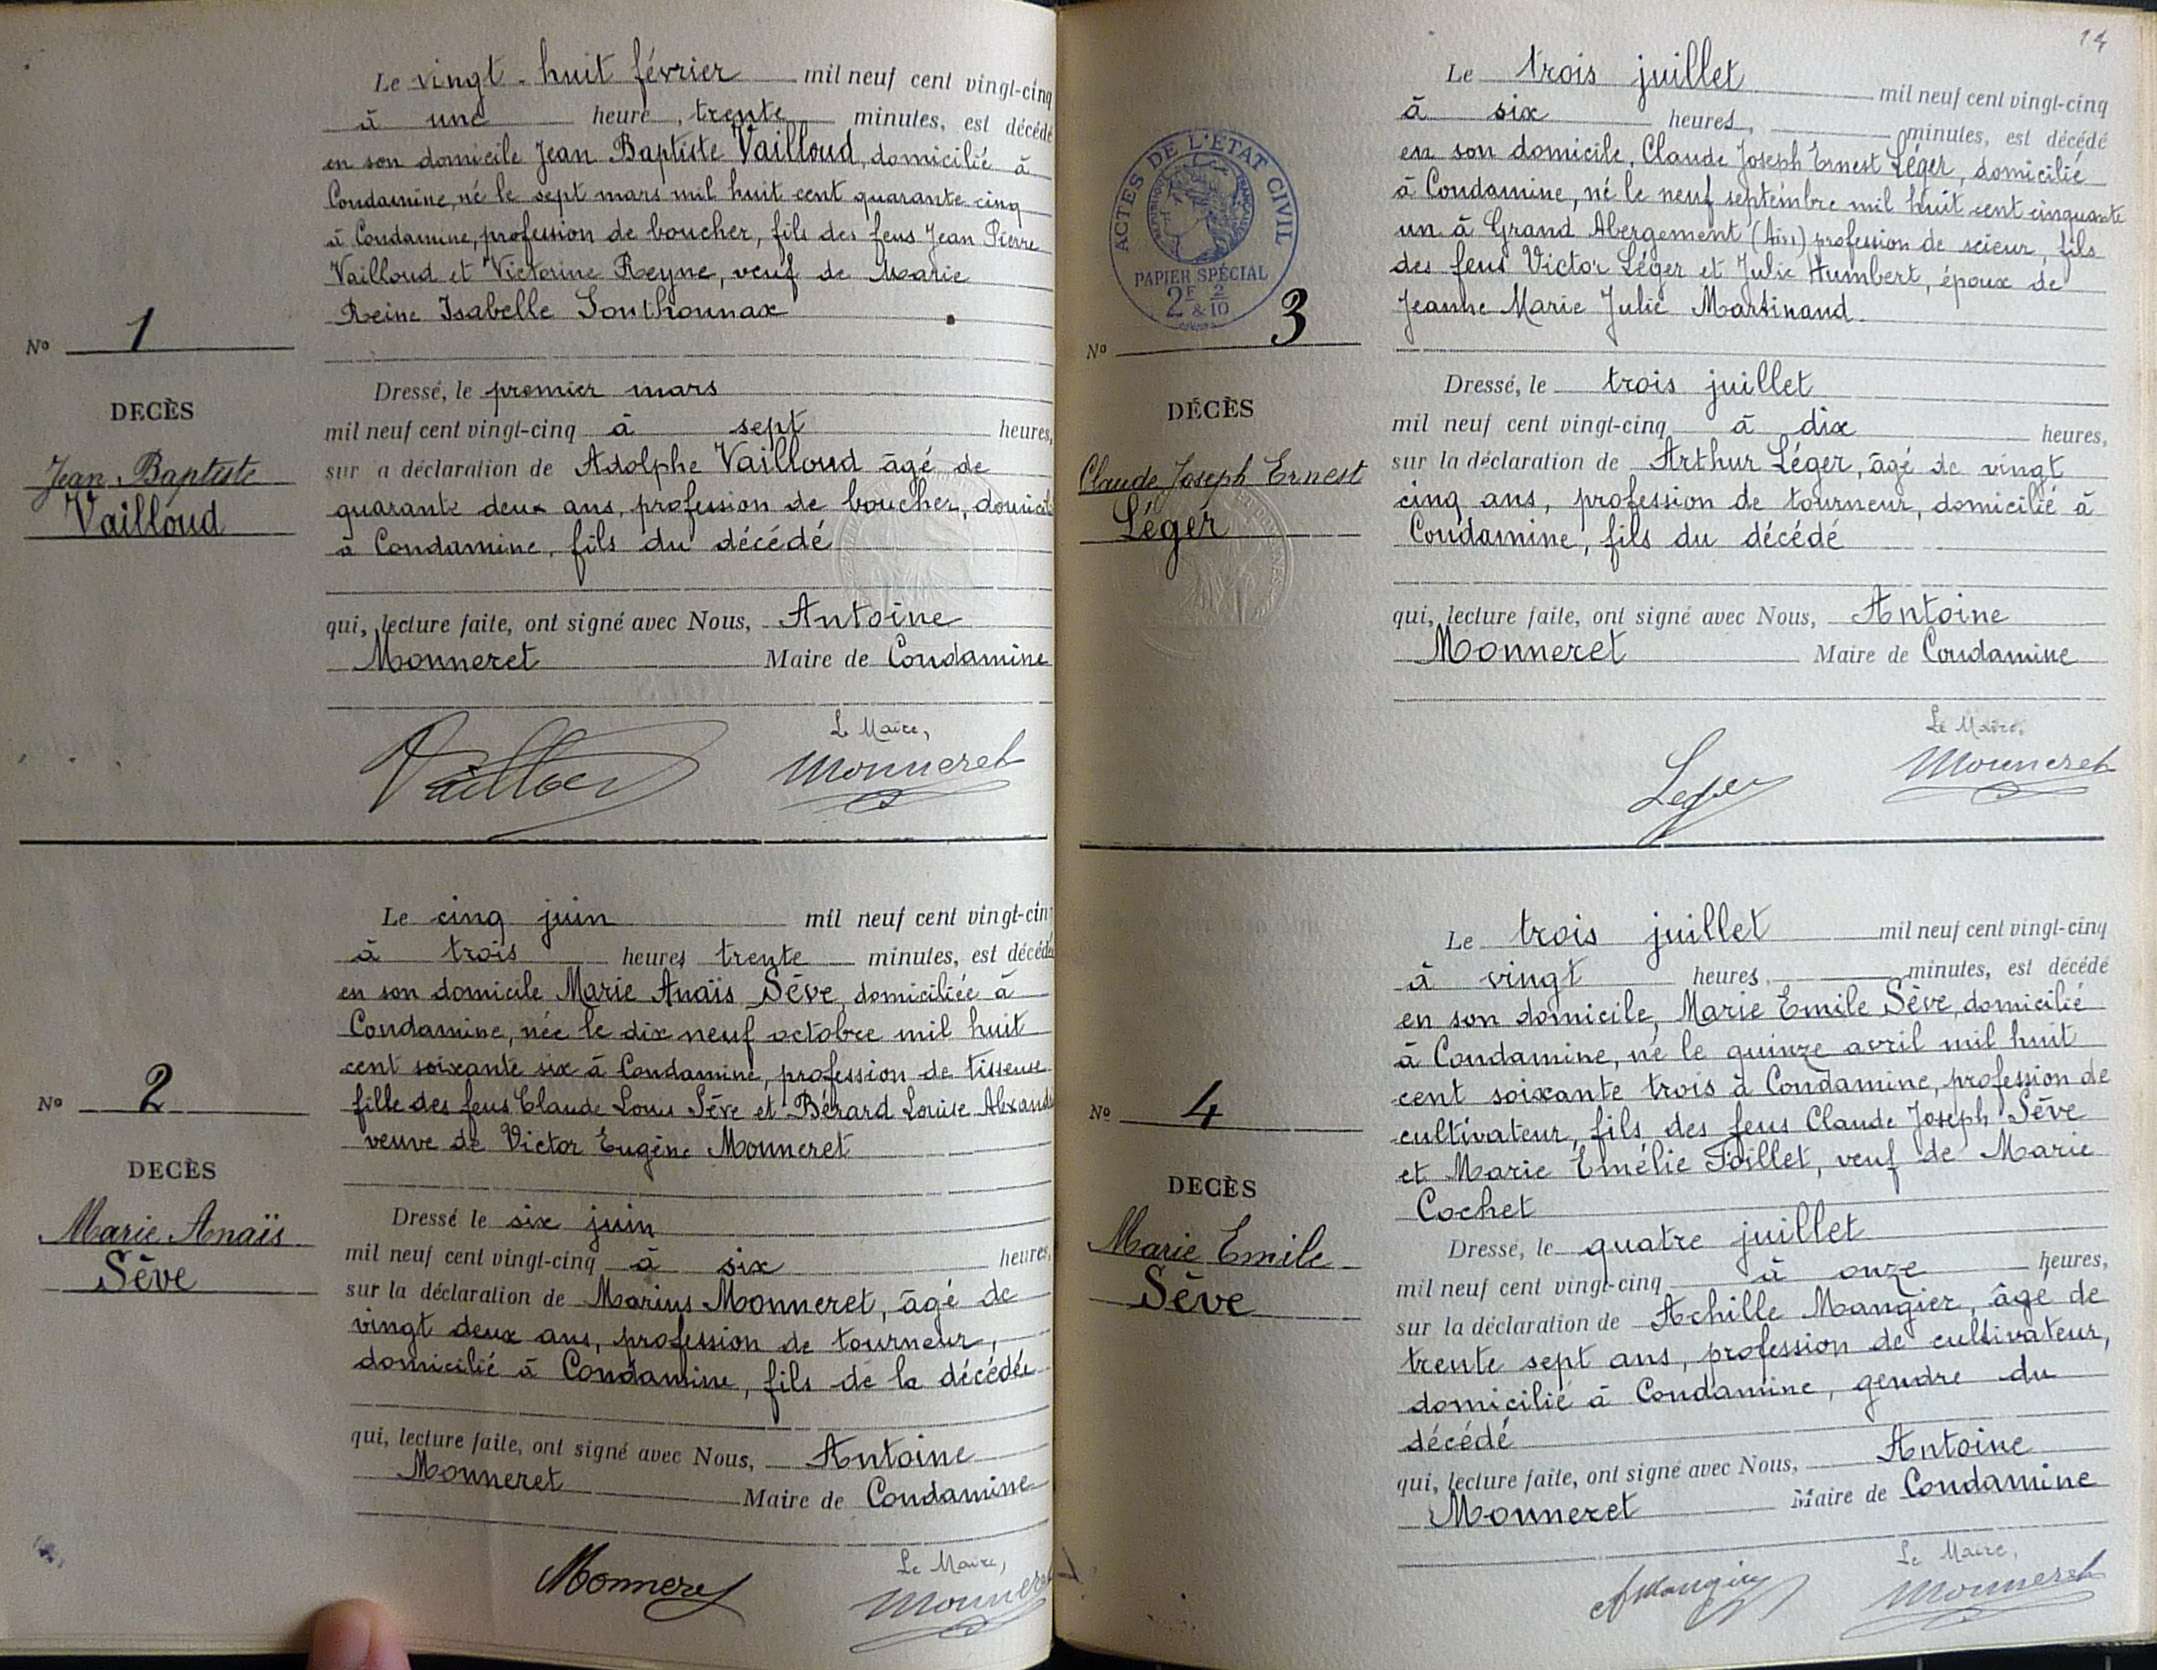 Le vingt-huit février mil neuf cent vingt-cinq
à une heure, trente minutes, est décédé
en son domicile Jean Baptiste Vailloud, domicilié à
Condamine, né le sept mars mil huit cent quarante cinq
à Condamine, profession de boucher, fils des feus Jean Pierre
Vailloud et Victorine Reyne, veuf de Marie
Reine Isabelle Southonnax
No 1
DECÈS
Jean Baptiste
Vailloud
Dressé, le premier mars
mil neuf cent vingt-cinq à sept heures,
sur a déclaration de Adolphe Vailloud âgé de
quarante deux ans, profession de boucher, domicilié
à Condamine, fils du décédé
qui, lecture faite, ont signé avec Nous, Antoine
Monneret Maire de Condamine
Le Maire,
Vailloud Monneret
Le cinq juin mil neuf cent vingt-cinq
à trois heures trente minutes, est décédée
en son domicile Marie Anaïs Sève, domiciliée à
Condamine, née le dix neuf octobre mil huit
cent soixante six à Condamine, profession de tisseuse
fille des feus Claude Louis Sève et Bérard Louise Alexand
veuve de Victor Eugène Monneret
No 2
DECÈS
Marie Anaïs
Sève
Dressé le six juin
mil neuf cent vingt-cinq à six heures,
sur la déclaration de Marius Monneret, âgé de
vingt deux ans, profession de tourneur,
domicilié à Condamine, fils de la décédée
qui, lecture faite, ont signé avec Nous, Antoine
Monneret Maire de Condamine
Le Maire,
Monneret Monneret
14
Le trois juillet mil neuf cent vingt-cinq
à six heures, minutes, est décédé
en son domicile, Claude Joseph Ernest Léger, domicilié
à Condamine, né le neuf septembre mil huit cent cinquante
un à Grand Abergement (Ain) profession de scieur, fils
des feus Victor Léger et Julie Humbert, époux de
Jeanne Marie Julie Martinand
ACTES DE L'ÉTAT CIVIL
RÉPUBLIQUE FRANÇAISE
PAPIER SPÉCIAL
2F & 2/10
No 3
DÉCÈS
Claude Joseph Ernest
Léger
Dressé, le trois juillet
mil neuf cent vingt-cinq à dix heures,
sur la déclaration de Arthur Léger, âgé de vingt
cinq ans, profession de tourneur, domicilié à
Condamine, fils du décédé
qui, lecture faite, ont signé avec Nous, Antoine
Monneret Maire de Condamine
Le Maire,
Leger Monneret
Le trois juillet mil neuf cent vingt-cinq
à vingt heures, minutes, est décédé
en son domicile, Marie Emile Sève, domicilié
à Condamine, né le quinze avril mil huit
cent soixante trois à Condamine, profession de
cultivateur, fils des feus Claude Joseph Sève
et Marie Emélie Poillet, veuf de Marie
Cochet
No 4
DECÈS
Marie Emile
Sève
Dressé, le quatre juillet
mil neuf cent vingt-cinq à onze heures,
sur la déclaration de Achille Mangier, âgé de
trente sept ans, profession de cultivateur,
domicilié à Condamine, gendre du
décédé
qui, lecture faite, ont signé avec Nous, Antoine
Monneret Maire de Condamine
Le Maire,
AMangier Monneret